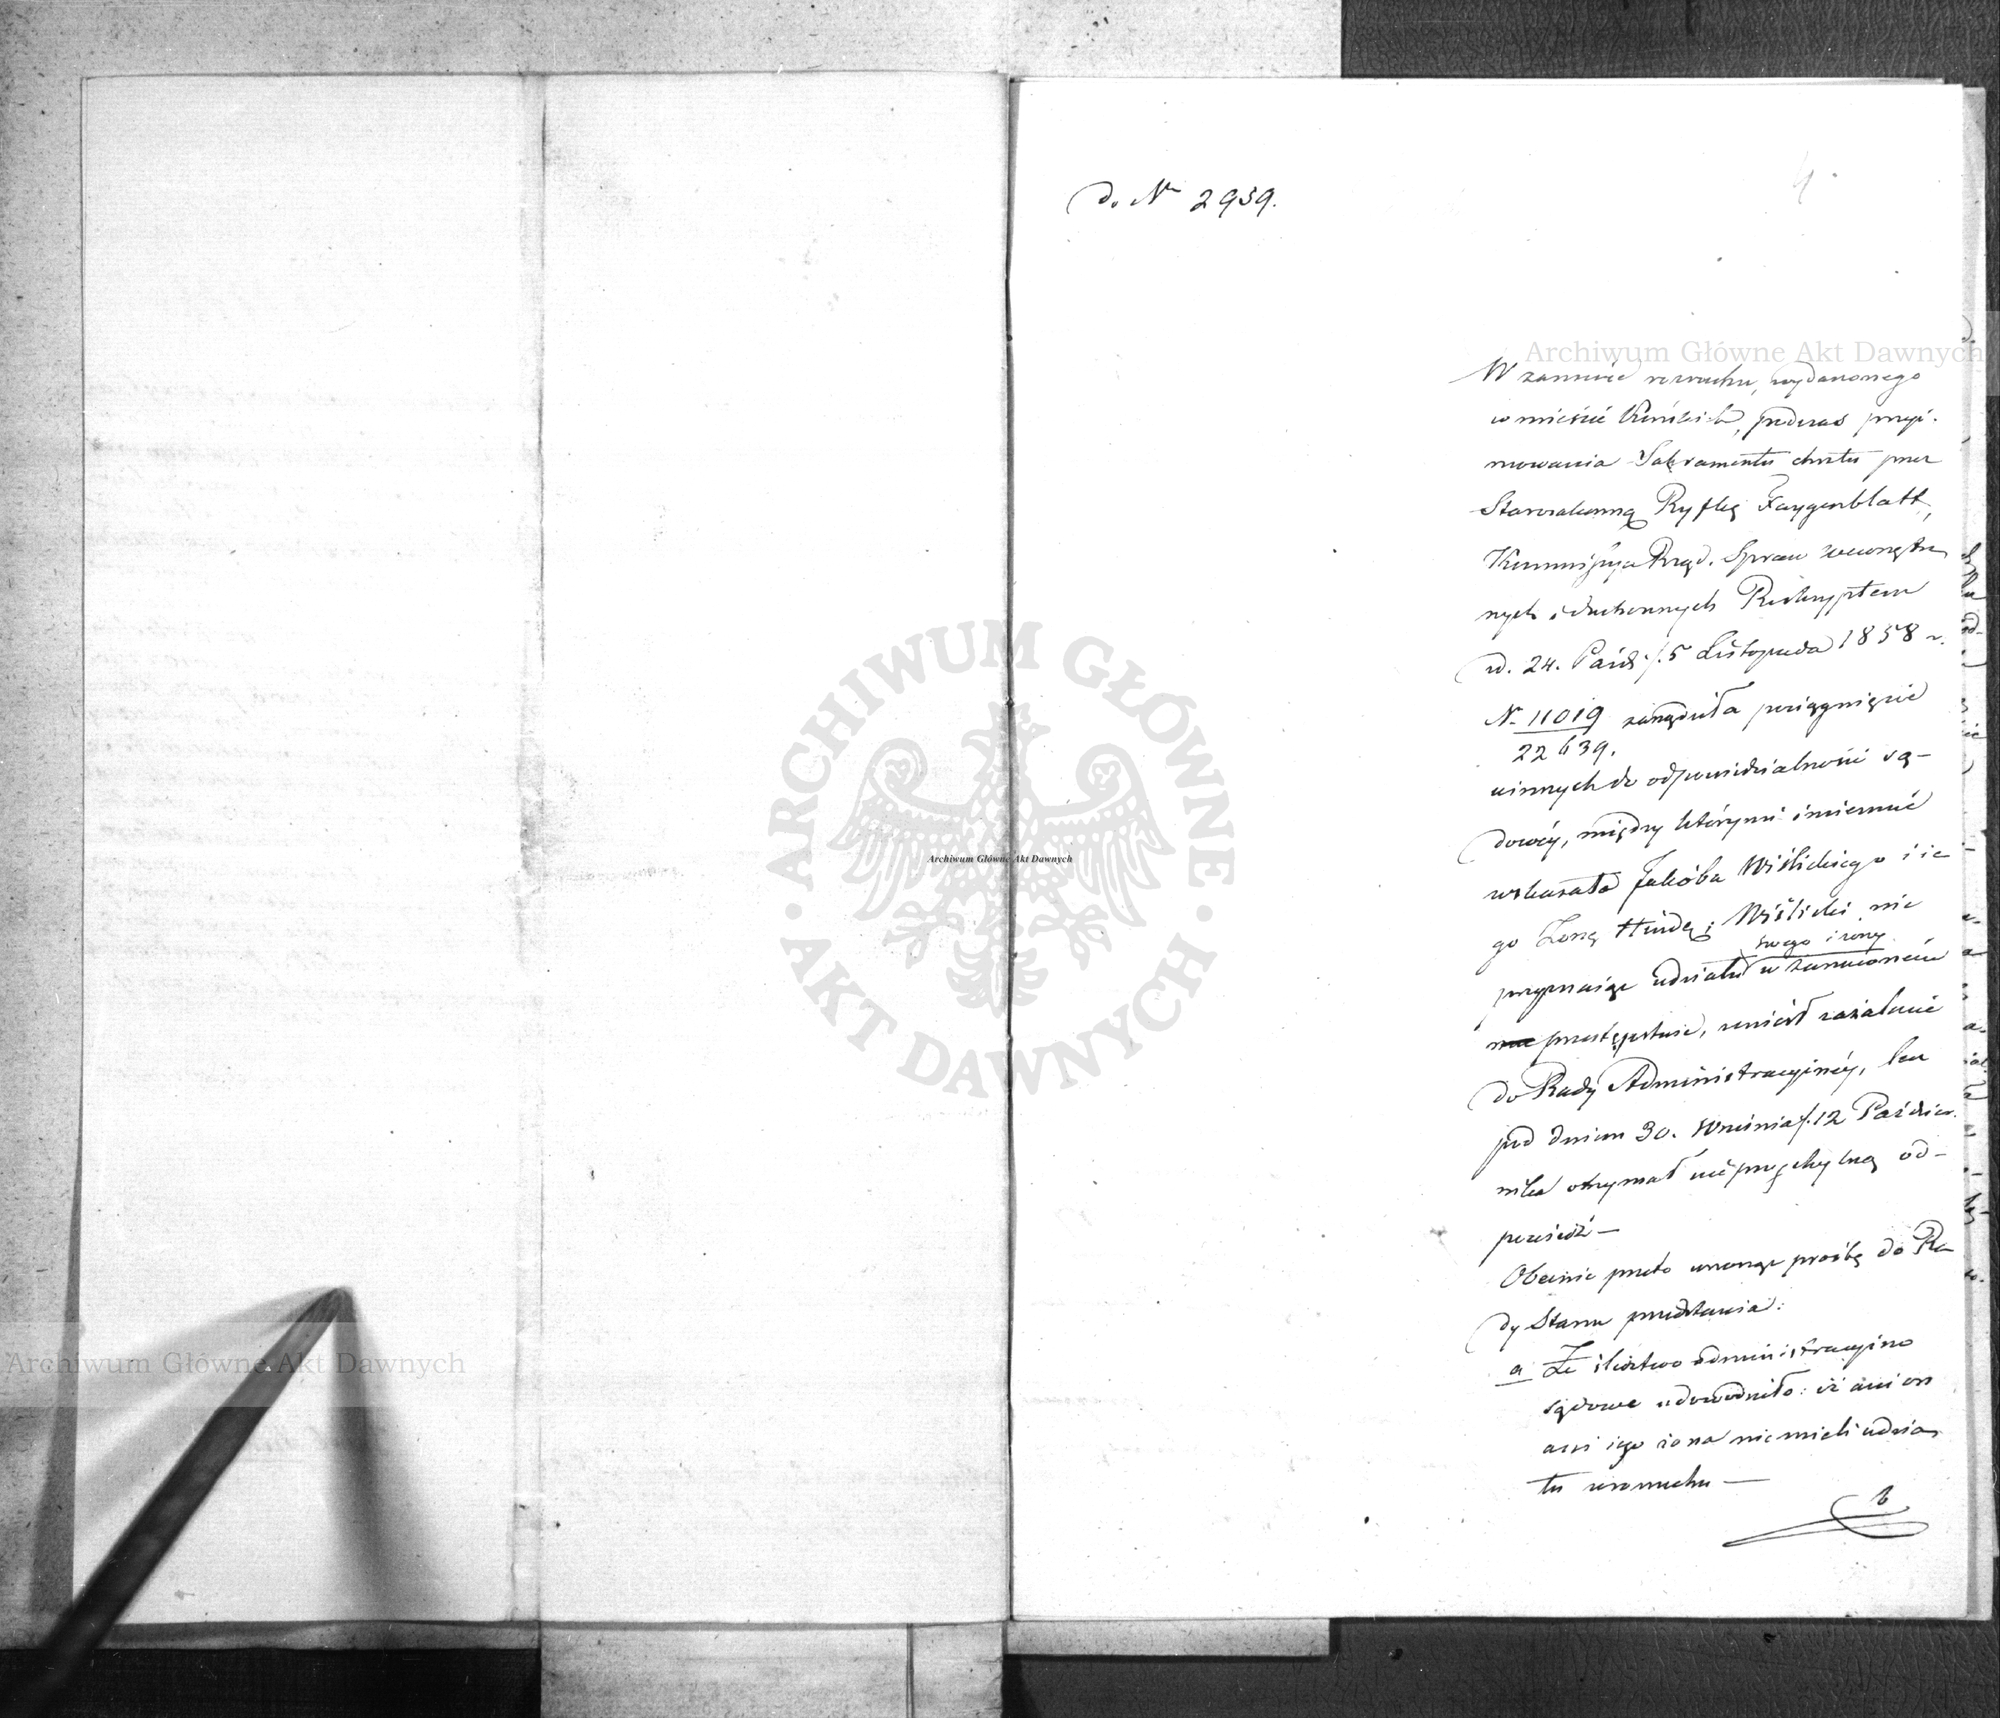 do Nr 2959.
4
W zamiarze rozruchu, wydarzonego
w mieście Końskich, podczas przyj-
mowania Sakramentu chrztu przez
Starozakonną Ryfkę Faygenblatt,
Kommissya Rząd. Spraw wewnętrz
nych i duchownych Reskryptem
d. 24. Paźdz./5 Listopada 1858 r.
N. 11019/22639. zarządziła pociągnięcie
winnych do odpowiedzialności są-
dowéj, między któremi imiennie
wskazała Jakóba Wiślickiego i je
go Żonę Hindę; Wiślicki nie
swego i żony
przyznając udziału w zarzuconém
przestępstwie, zaniósł zażalenie
do Rady Administracyjnéj, lecz
pod dniem 30. Września/12 Paździer.
nika otrzymał nieprzychylną od-
powiedź —
Obecnie przeto wnosząc prośbę do Ra
dy Stanu przedstawia:
a Że śledztwo administracyjno
sądowe udowodniło: iż ani on
ani jego żona nie mieli udzia
łu w rozruchu —
b
Archiwum Główne Akt Dawnych
Archiwum Główne Akt Dawnych
Archiwum Główne Akt Dawnych
ARCHIWUM GŁÓWNE
· AKT DAWNYCH ·